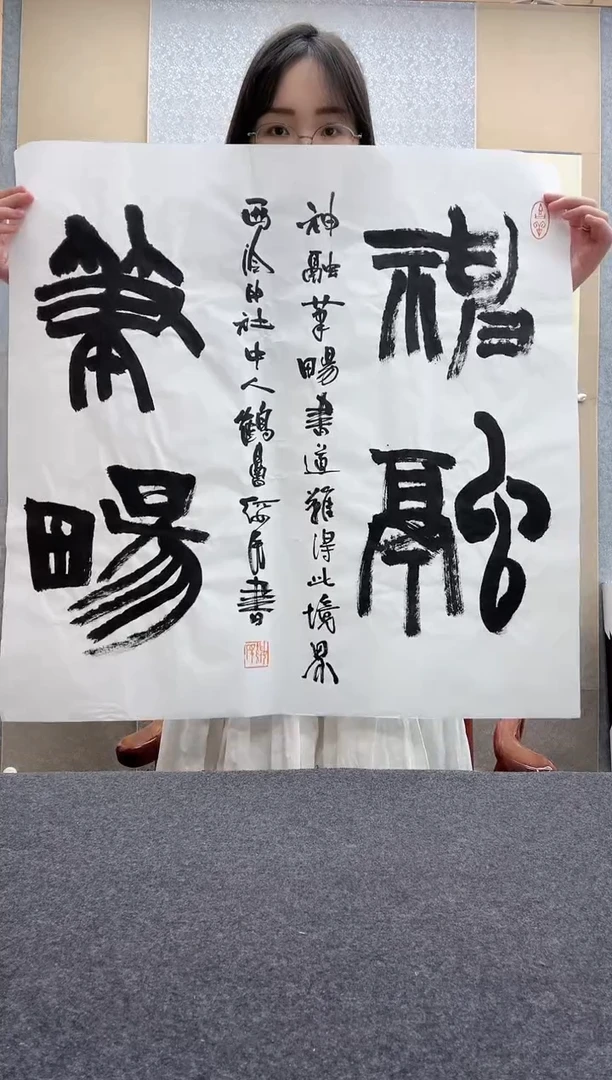 神融
筆暢
神融筆暢書道難得此境界
西泠印社中人鶴
書